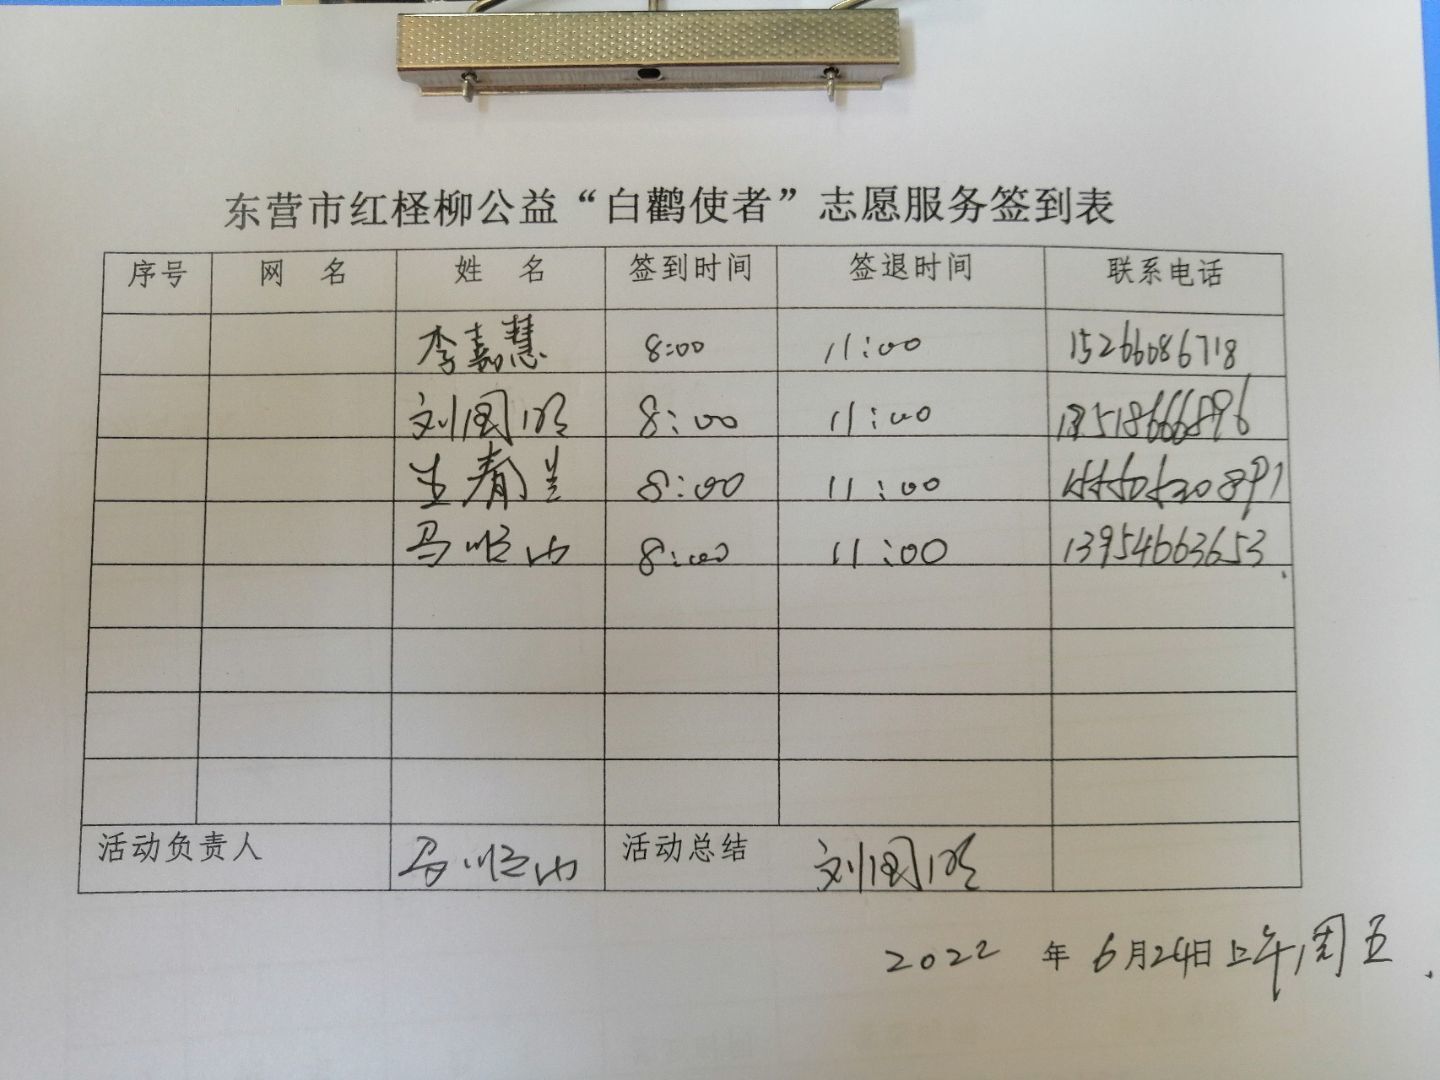 东营市红柽柳公益“白鹳使者”志愿服务签到表
序号 网 名 姓 名 签到时间 签退时间 联系电话
李嘉慧 8:00 11:00 15266086718
刘国明 8:00 11:00
8:00 11:00
马顺山 8:00 11:00 13954663653
活动负责人 马顺山 活动总结 刘国明
2022 年 6月24日上午,周五.